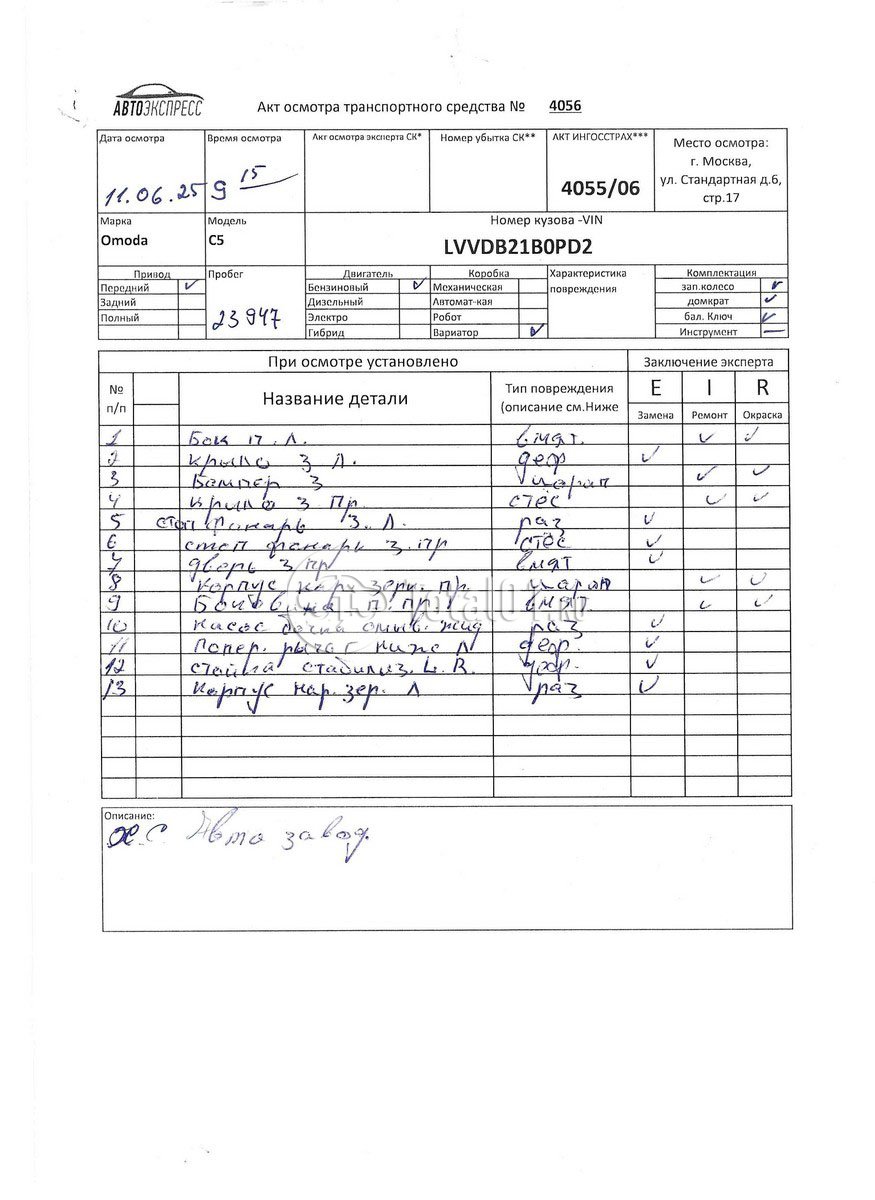 АВТОЭКСПРЕСС
Акт осмотра транспортного средства № 4056
Дата осмотра
11.06.25
Время осмотра
9 15
Акт осмотра эксперта СК*
Номер убытка СК**
АКТ ИНГОССТРАХ***
4055/06
Место осмотра:
г. Москва,
ул. Стандартная д.6,
стр.17
Марка
Omoda
Модель
C5
Номер кузова -VIN
LVVDB21B0PD2
Привод
Передний ✓
Задний
Полный
Пробег
23947
Двигатель
Бензиновый ✓
Дизельный
Электро
Гибрид
Коробка
Механическая
Автомат-кая
Робот
Вариатор ✓
Характеристика
повреждения
Комплектация
зап.колесо ✓
домкрат ✓
бал. Ключ ✓
Инструмент —
При осмотре установлено
Заключение эксперта
№
п/п
Название детали
Тип повреждения
(описание см.Ниже
E I R
Замена Ремонт Окраска
1 Бок П. Л. вмят. ✓ ✓
2 Крыло З Л. деф ✓
3 Бампер З царап ✓ ✓
4 Крыло З Пр. стёс ✓ ✓
5 стоп фонарь З. Л. раз ✓
6 стоп фонарь З. пр стёс ✓
7 дверь З пр вмят ✓
8 Корпус нар. зерк. пр. царап ✓ ✓
9 п. пр. вмят. ✓ ✓
10 бочка омыв. жид раз ✓
11 Попер. рычаг ниж Л деф. ✓
12 стойка стабилиз. L. R. деф. ✓
13 Корпус нар. зер. Л раз ✓
Описание:
Авто завод.